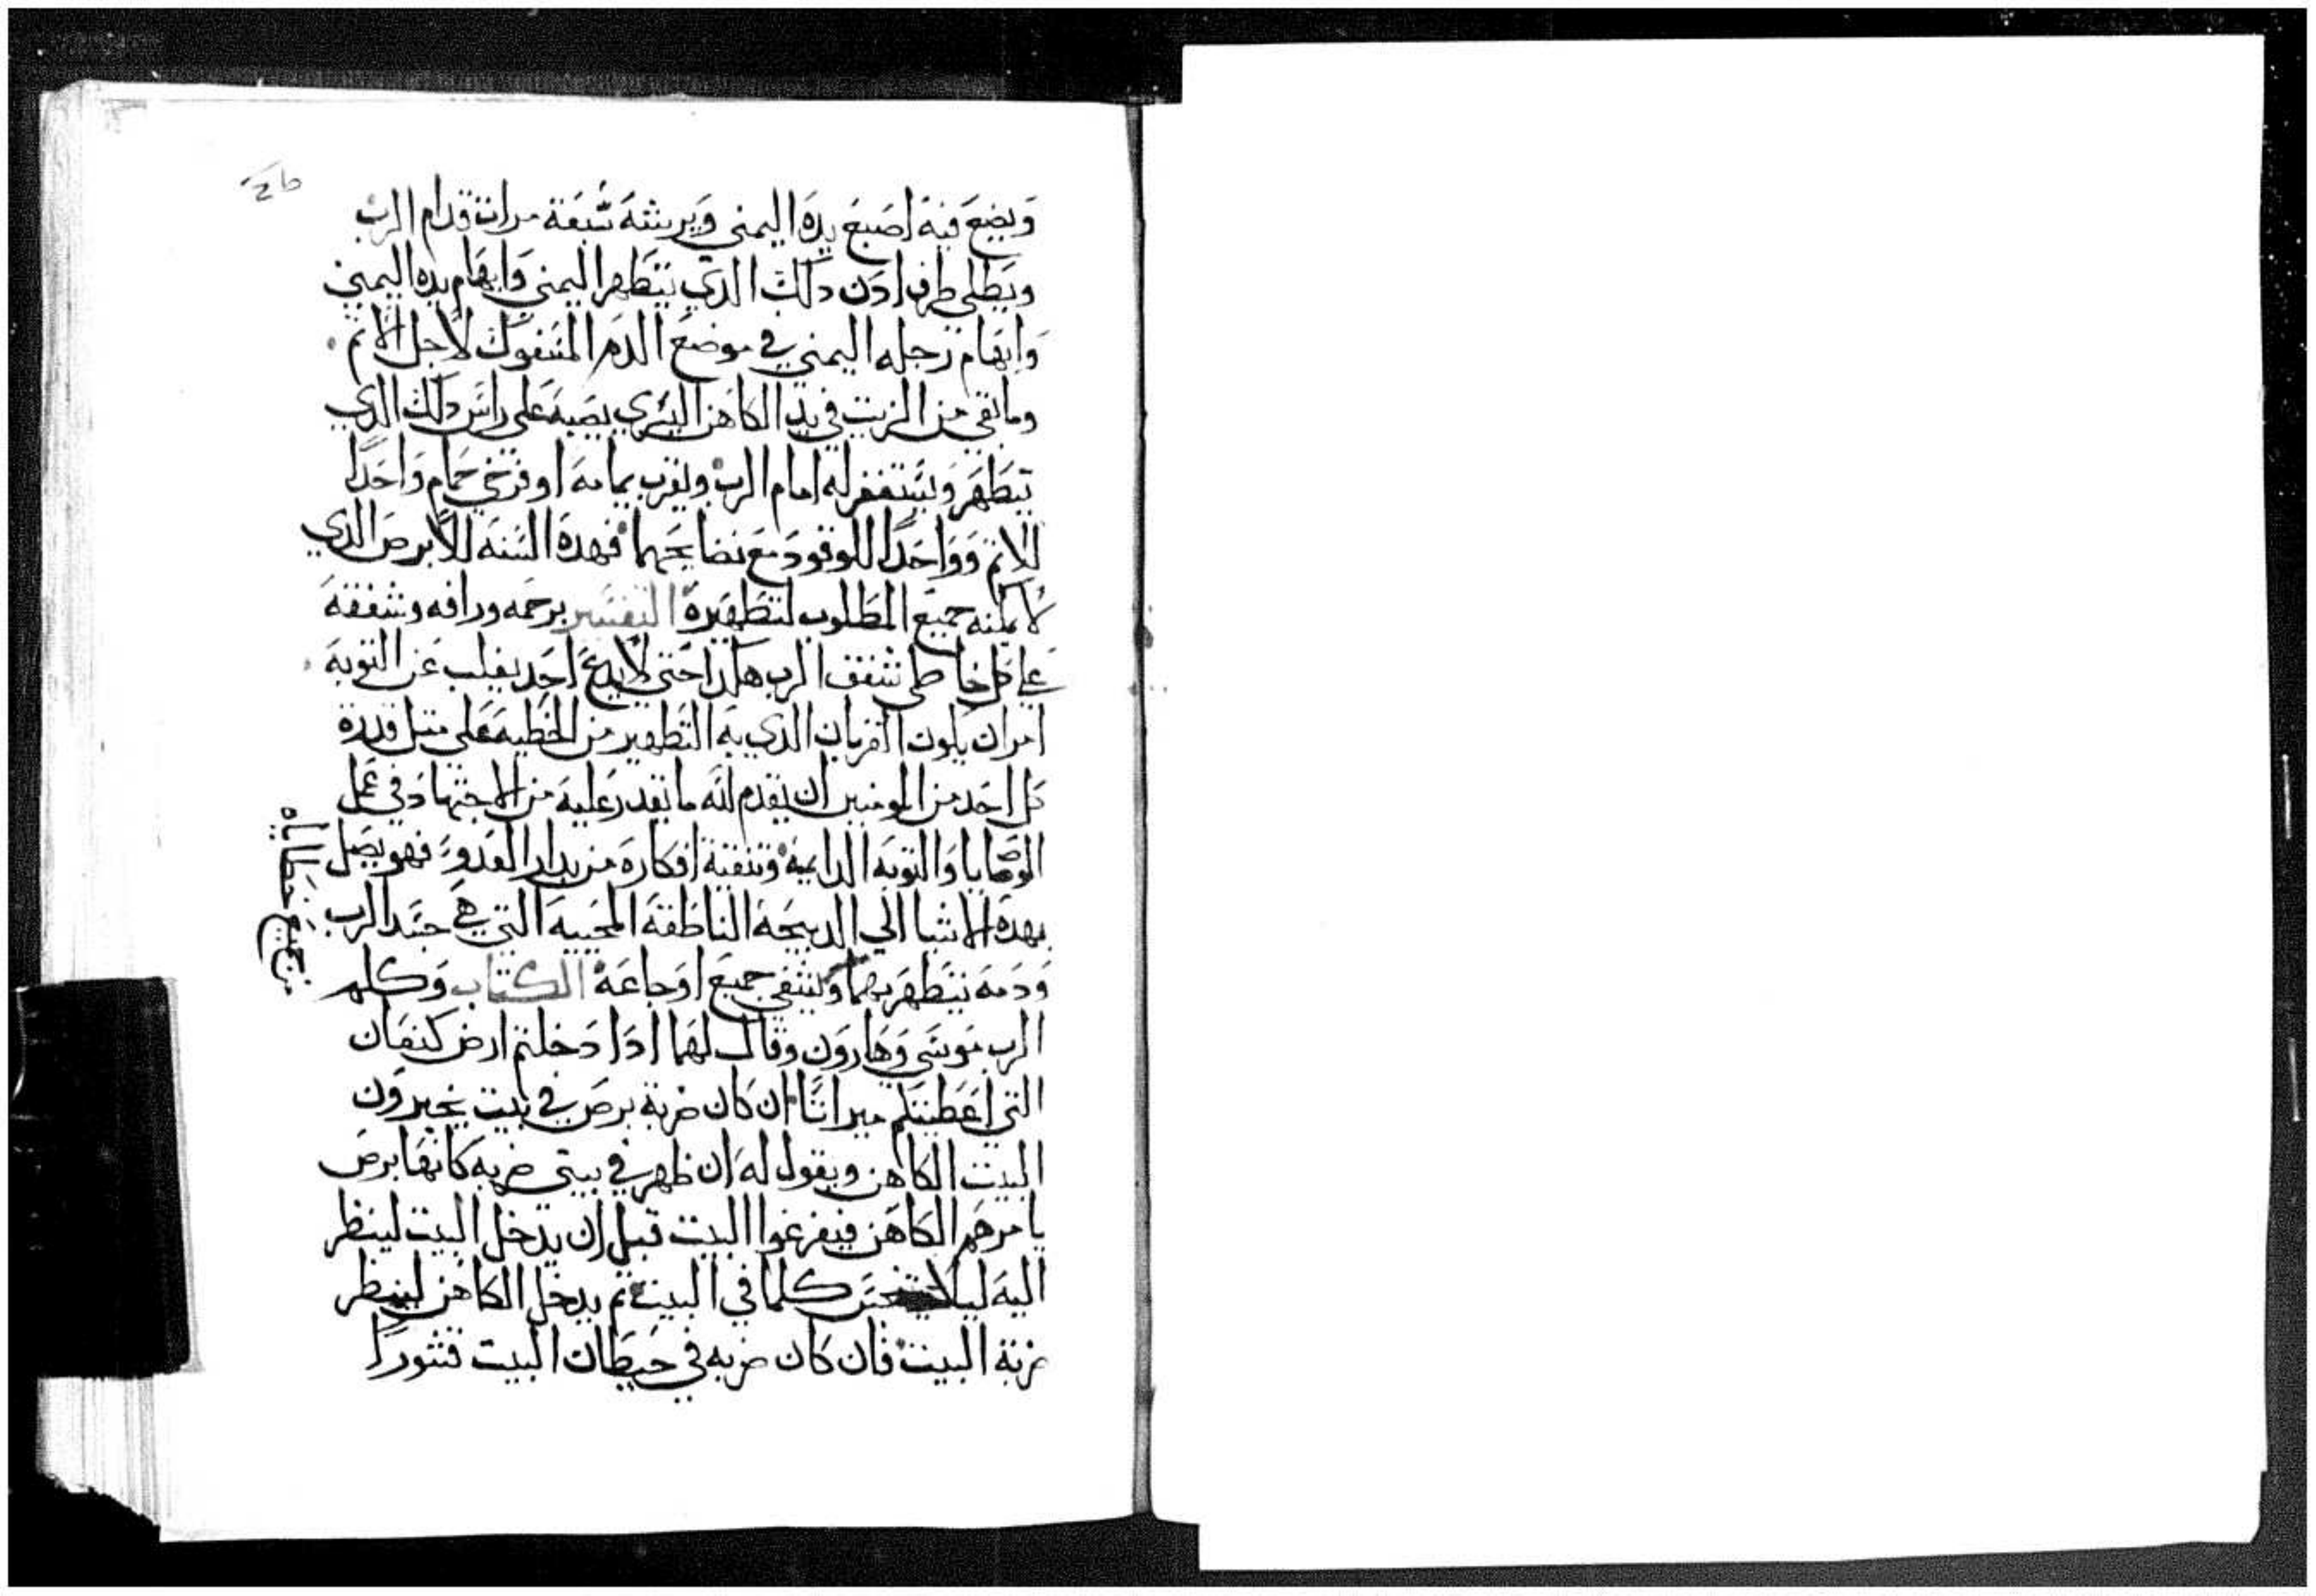 ويضع فيه اصبع يده اليمني ويرشه سبعة مرات قدام الرب
ويطلي طرف ادن دلك الدي يتطهر اليمني وابهام يده اليمني
وابهام رجله اليمني في موضع الدم المسفوك لاجل الاثم
وما بقي من الزيت في يد الكاهن اليسري يصبه علي راس دلك الدي
يتطهر ويستغفر له امام الرب ويقرب يمامه او فرخي حمام واحدا
للاثم وواحدا للوقود مع نضايحهما فهده السنه للابرص الدي
لا يمكنه جميع المطلوب لتطهيره التفسير برحمه ورافه وشفقه
علي كل خاطي شفق الرب هكدا حتي لا يدع احد يغلب عن التوبه
امر ان يكون القربان الدي به التطهير من الخطيه علي مثل قدرة
كل احد من المومنين ان يقدم لله ما يقدر عليه من الاجتهاد في عمل
الوصايا والتوبه الدايمه وتنقية افكاره من بدار العدو فهو يصل
بهده الاشيا الي الدبيحة الناطقه المحييه التي هي جسد الرب
ودمه يتطهر بهما وينقي جميع اوجاعه الكتاب وكلم
الرب موسي وهارون وقال لهما ادا دخلتم ارض كنعان
التي اعطيتكم ميراثا ان كان ضربة برص في بيت يخبرون
البيت الكاهن ويقول له ان ظهر في بيتي ضربه كانها برص
يامرهم الكاهن فيفرغوا البيت قبل ان يدخل البيت لينظر
اليه ليلا يتنجس كلما في البيت ثم يدخل الكاهن لينظر
ضربة البيت فان كان ضربه في حيطان البيت
من جميع خطاياه